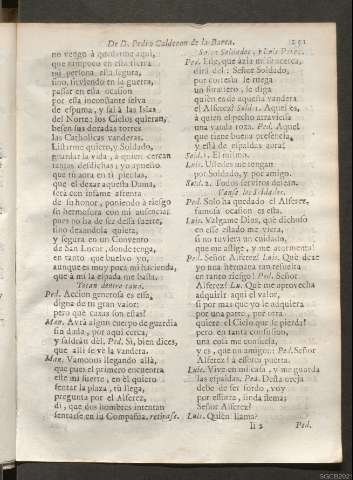 De D. Pedro Calderon de la Barca. 251
no vengo à quedarme aqui,
que tampoco en esta tierra
mi persona està segura,
sino, sirviendo en la guerra,
passar en esta ocasion
por esta inconstante selva
de espuma, y sal à las Islas
del Norte: los Cielos quieran,
besen sus doradas torres
las Catholicas vanderas.
Listarme quiero, y Soldado,
guardar la vida, à quien cercan
tantas desdichas; yo apuesto
que tu aora en ti piensas,
que el dexar aquesta Dama,
serà con infame afrenta
de tu honor, poniendo à riesgo
su hermosura con mi ausencia;
pues no ha de ser dessa suerte,
sino dexandola quieta,
y segura en un Convento
de San Lucar, donde tenga,
en tanto que buelvo yo,
aunque es muy poca mi hacienda,
que à mi la espada me basta.
Tocan dentro caxa.
Ped. Accion generosa es essa,
digna de tu gran valor:
pero què caxas son estas?
Man. Avrà algun cuerpo de guardia
sin duda, por aqui cerca,
y saldràn del. Ped. Si, bien dices,
que alli se vè la vandera.
Man. Vamonos llegando allà,
que pues el primero encuentra
este mi suerte, en èl quiero
sentar la plaza, tu llega,
pregunta por el Alferez,
di, que dos hombres intentan
sentarse en su Compañia. retirase.
Salen Soldados, y Luis Perez.
Ped. Este, que azia mi se acerca,
dirà del: Señor Soldado,
por cortesia le ruega
un forastero, le diga
quièn es de aquesta vandera
el Alferez? Sold. 1. Aquel es,
à quien el pecho atraviessa
una vanda roxa. Ped. Aquel
que tiene buena presencia,
y està de espaldas aora?
Sold. 1. El mismo.
Luis. Ustedes me tengan
por Soldado, y por amigo.
Sold. 2. Todos serviros desean.
Vanse los Soldados.
Ped. Solo ha quedado el Alferez,
famosa ocasion es esta.
Luis. Valgame Dios, què dichoso
en este estado me viera,
si no tuviera un cuidado,
que me aflige, y me atormenta!
Ped. Señor Alferez! Luis. Què, de
yo una hermana tan resuelta
en tanto riesgo! Ped. Señor
Alferez! Lu. Què me aprovecha
adquirir aqui el valor,
si por mas que yo le adquiera
por una parte, por otra
quiere el Cielo que se pierda?
pero en tanta confusion,
una cosa me consuela,
y es, que un amigo:: Ped. Señor
Alferez! à essotra puerta.
Luis. Vive en mi casa, y me guarda
las espaldas. Ped. Desta oreja
debe de ser sordo, voy
por estotra, sin da tiemas:
Señor Alferez?
Luis. Quièn llama?
Ii 2 Ped.
SGCB2021